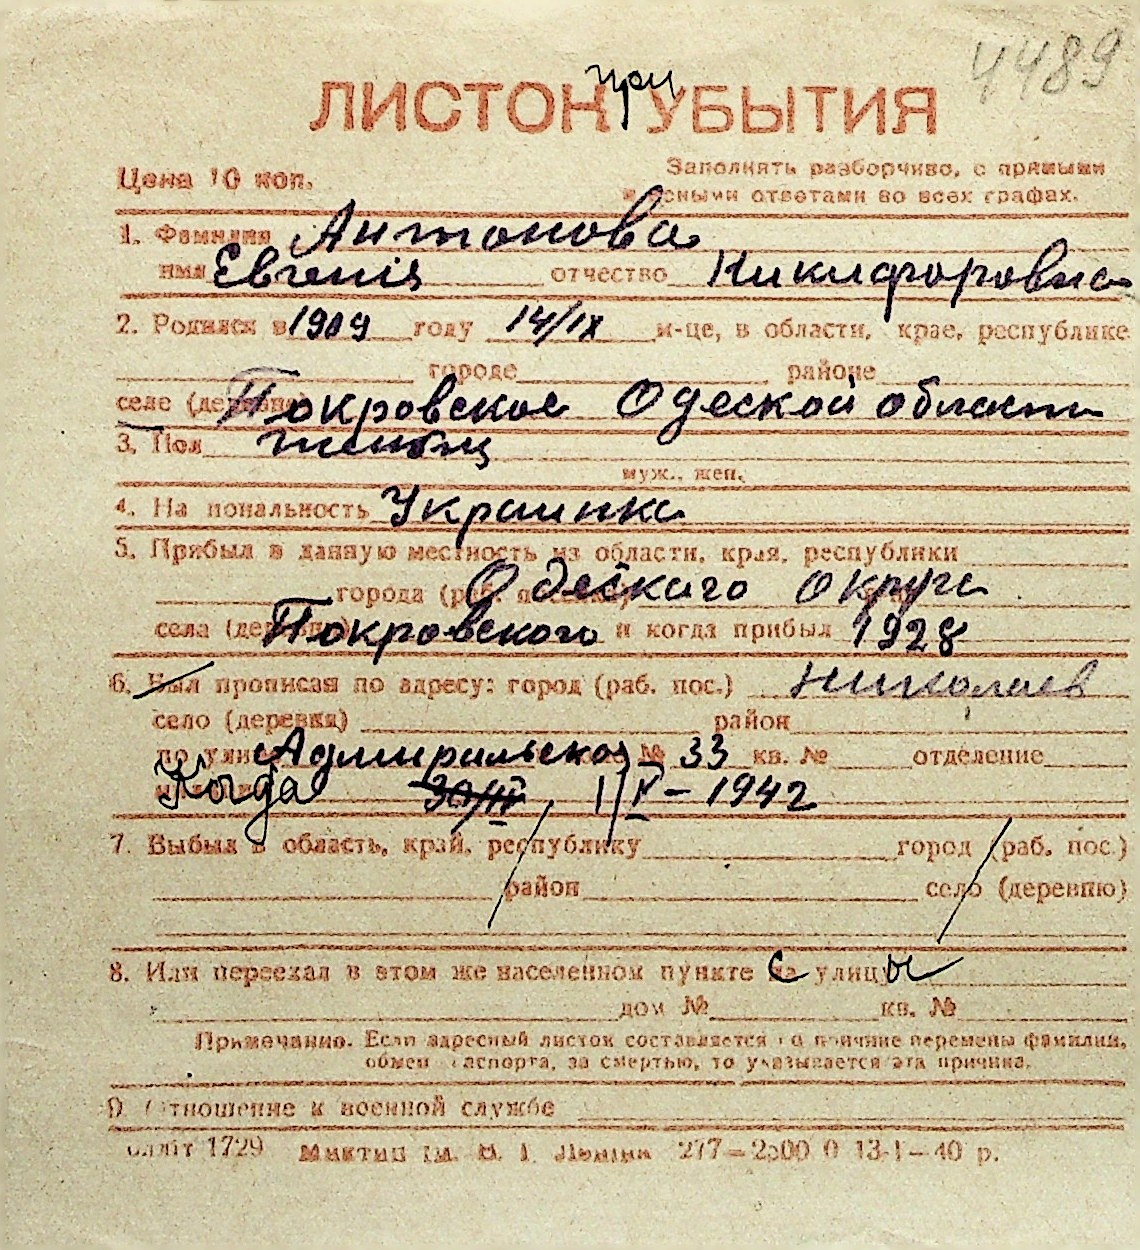 4489
ЛИСТОК при УБЫТИЯ
Цена 10 коп.
Заполнять разборчиво, с прямыми
и ясными ответами во всех графах.
1. Фамилия Антонова
имя Евгения отчество Никифоровна
2. Родился в 1909 году 14/IX м-це, в области, крае, республике
городе районе
селе (деревне) Покровское Одеской области
3. Пол
муж., жен.
4. Национальность Украинка
5. Прибыл в данную местность из области, края, республики
города (раб. поселка) Одеского округа
села (деревни) Покровского и когда прибыл 1928
6. Был прописан по адресу: город (раб. пос.) Николаев
село (деревня) район
по улице Адмиральской № 33 кв. № отделение
Когда 30/IV 1/V - 1942
7. Выбыл в область, край, республику город (раб. пос.)
район село (деревню)
8. Или переехал в этом же населенном пункте с улицы
дом № кв. №
Примечание. Если адресный листок составляется по причине перемены фамилии,
обмен паспорта, за смертью, то указывается эта причина.
9. Отношение к военной службе
1729 ім. В. І. Леніна 277—2500 0 13-І—40 р.